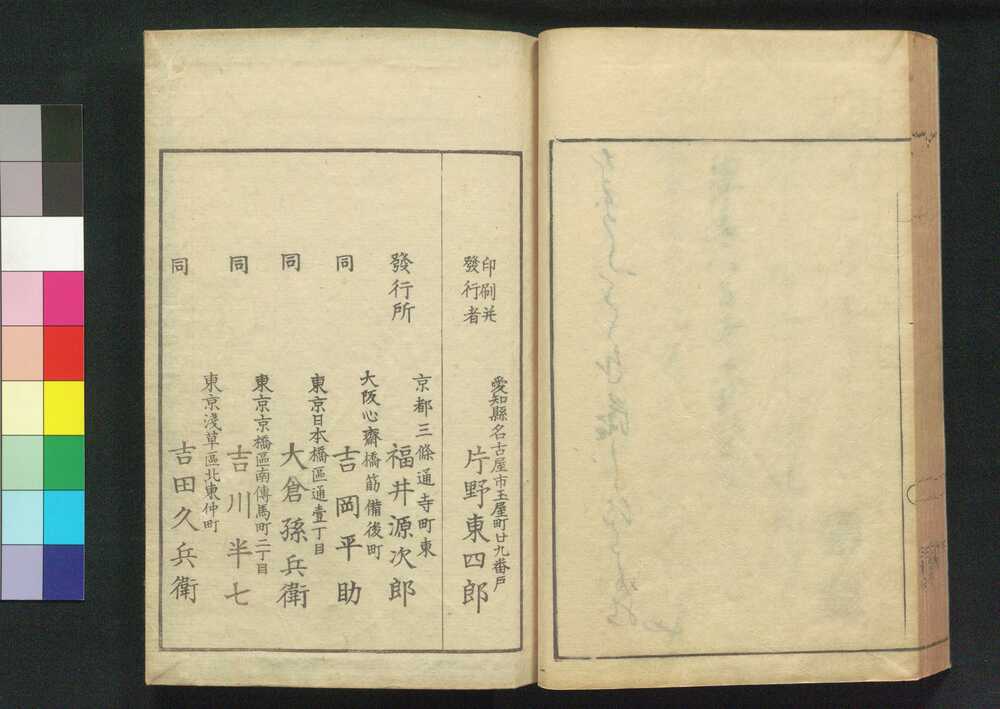 印刷并
發行者
愛知縣名古屋市玉屋町廿九番戸
片野東四郎
發行所
京都三條通寺町東
福井源次郎
同
大阪心齋橋筋備後町
吉岡平助
同
東京日本橋區通壹丁目
大倉孫兵衛
同
東京京橋區南傳馬町二丁目
吉川半七
同
東京淺草區北東仲町
吉田久兵衛